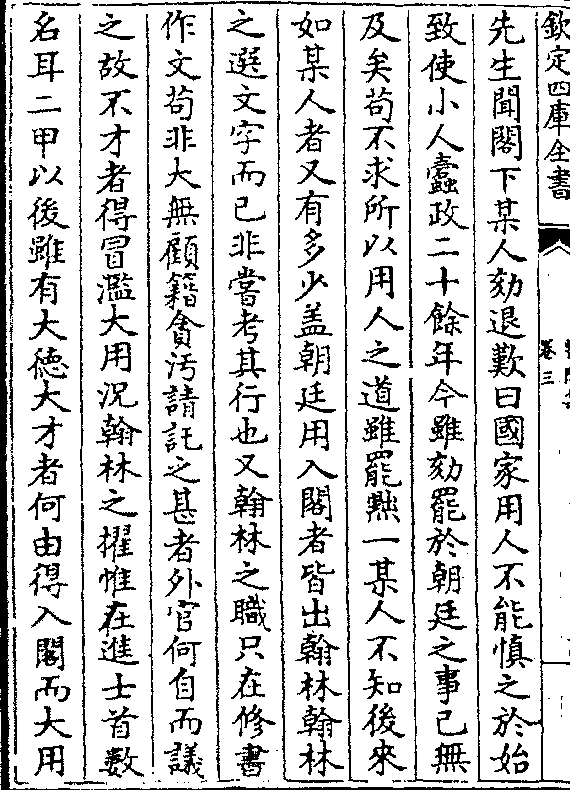 欽定四庫全書
卷三
先生聞閣下某人劾退歎曰國家用人不能慎之於始
致使小人蠹政二十餘年今雖劾罷於朝廷之事已無
及矣苟不求所以用人之道雖罷黜一某人不知後來
如某人者又有多少盖朝廷用入閣者皆出翰林翰林
之選文字而已非嘗考其行也又翰林之職只在修書
作文苟非大無顧籍貪汚請託之甚者外官何自而議
之故不才者得冒濫大用况翰林之擢惟在進士首數
名耳二甲以後雖有大德大才者何由得入閣而大用